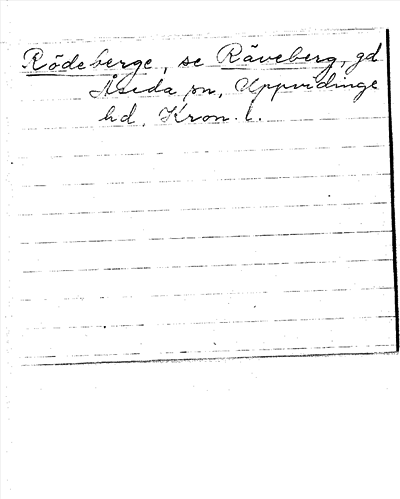 Rödeberge, se Räveberg, gd
Åseda sn, Uppvidinge
hd, Kron. l.